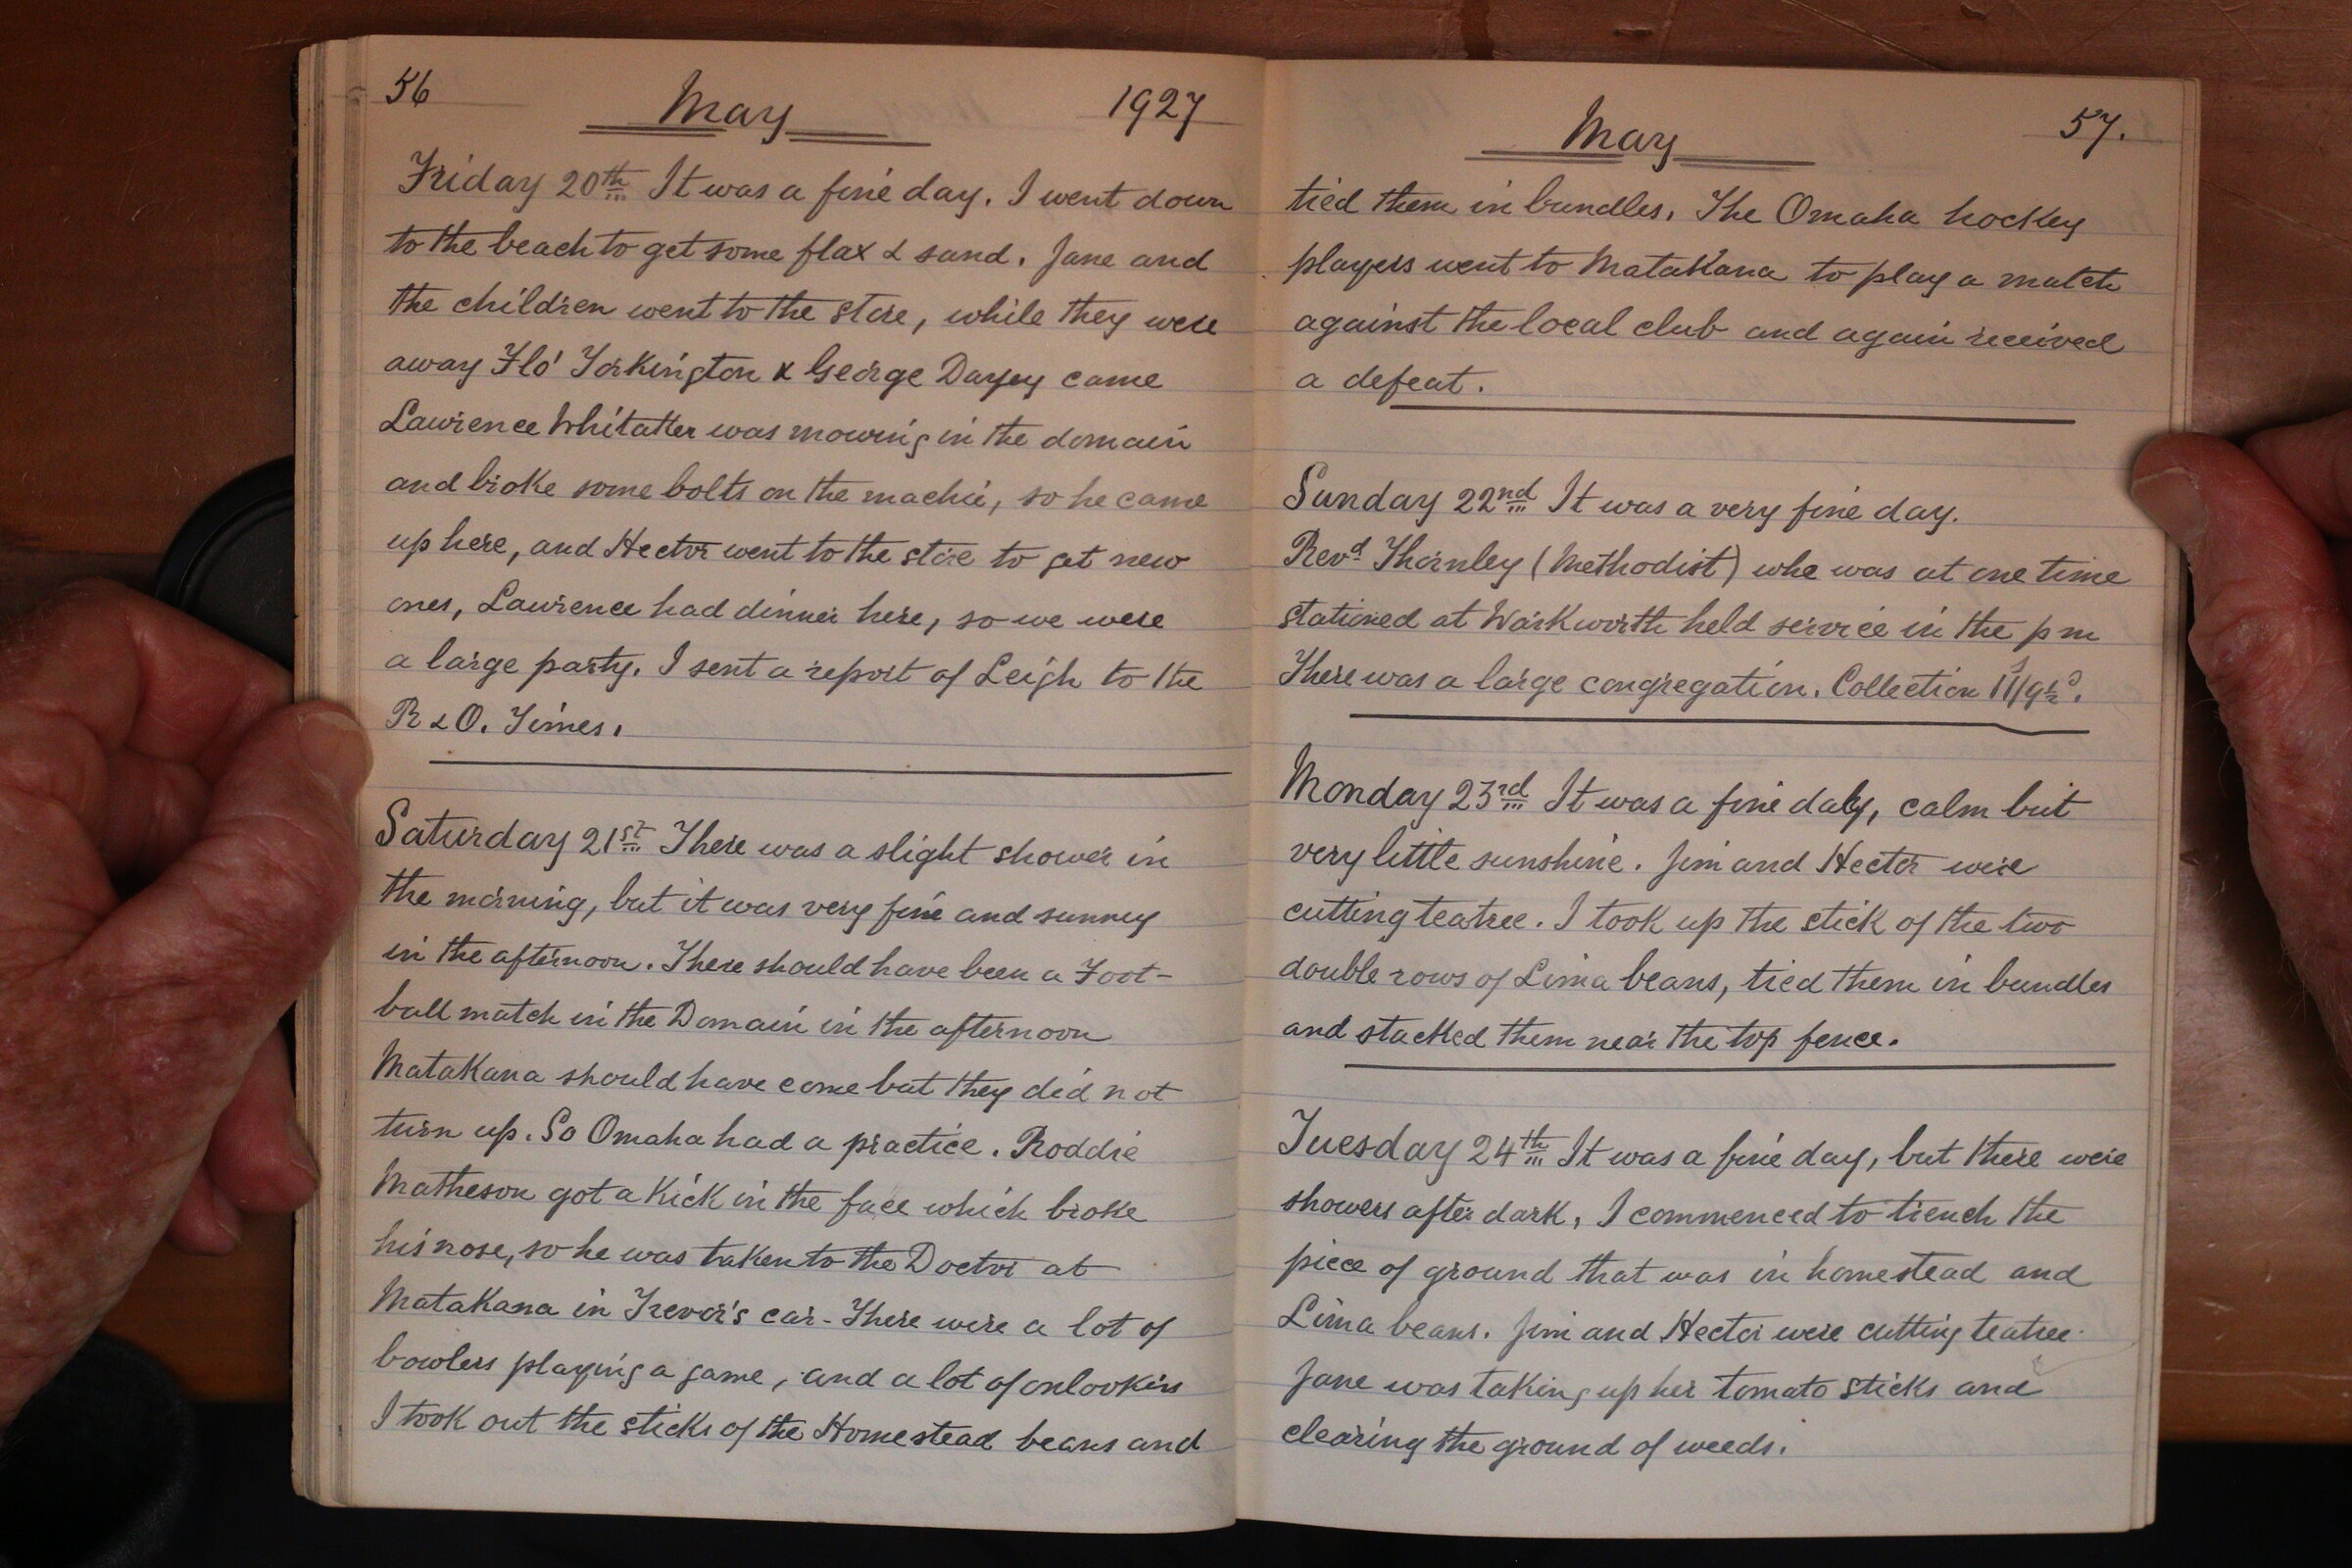 56
May
1927
Friday 20th It was a fine day. I went down
to the beach to get some flax & sand. Jane and
the children went to the store, while they were
away Flo' Torkington & George Davey came
Lawrence Whitatker was mowing in the domain
and broke some bolts on the machie, so he came
up here, and Hector went to the store to get new
ones, Lawrence had dinner here, so we were
a large party. I sent a report of Leigh to the
R & O. Times.
Saturday 21st There was a slight shower in
the morning, but it was very fine and sunney
in the afternoon. There should have been a Foot-
ball match in the Domain in the afternoon
Matakana should have come but they did not
turn up. So Omaha had a practice. Roddie
Matheson got a kick in the face which broke
his nose, so he was taken to the Doctor at
Matakana in Trevor's car - There were a lot of
bowlers playing a game, and a lot of onlookers
I took out the sticks of the Homestead beans and
May
57.
tied them in bundles. The Omaha hockey
players went to Matakana to play a match
against the local club and again received
a defeat.
Sunday 22nd It was a very fine day.
Revd. Thornley (Methodist) who was at one time
stationed at Warkworth held service in the pm
There was a large congregation. Collection
Monday 23rd It was a fine day, calm but
very little sunshine. Jim and Hector were
cutting teatree. I took up the stick of the two
double rows of Lima beans, tied them in bundles
and stacked them near the top fence.
Tuesday 24th It was a fine day, but there were
showers after dark, I commenced to trench the
piece of ground that was in homestead and
Lima beans. Jim and Hector were cutting teatree.
Jane was taking up her tomato sticks and
clearing the ground of weeds.